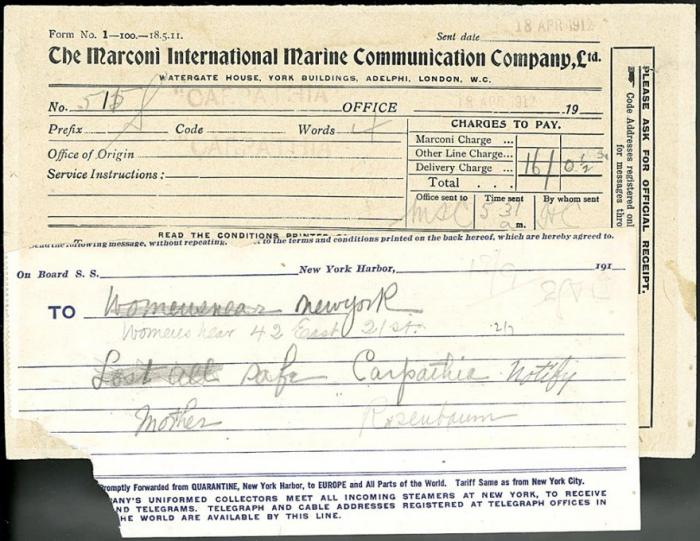 Form No. 1—100.—18.5.11.
Sent date
18 APR 1912
The Marconi International Marine Communication Company, Ltd.
WATERGATE HOUSE, YORK BUILDINGS, ADELPHI, LONDON, W.C.
"CARPATHIA"
18 APR 1912
No. 515 OFFICE 19
Prefix S Code Words 4
Office of Origin
Service Instructions:
CHARGES TO PAY.
Marconi Charge ...
Other Line Charge...
Delivery Charge ... 16/ 0½
Total . . .
Office sent to Time sent By whom sent
MSC 5 31 a m. HC
READ THE CONDITIONS PRINTED
the following message, without repeating, to the terms and conditions printed on the back hereof, which are hereby agreed to.
PLEASE ASK FOR OFFICIAL RECEIPT.
Code Addresses registered onl
for messages thro
On Board S. S. New York Harbor, 191
TO Womenswear newyork
Womens wear 42 East 21 st.
Lost all safe Carpathia Notify
Mother Rosenbaum
Promptly Forwarded from QUARANTINE, New York Harbor, to EUROPE and All Parts of the World. Tariff Same as from New York City.
ANY'S UNIFORMED COLLECTORS MEET ALL INCOMING STEAMERS AT NEW YORK, TO RECEIVE
ND TELEGRAMS. TELEGRAPH AND CABLE ADDRESSES REGISTERED AT TELEGRAPH OFFICES IN
THE WORLD ARE AVAILABLE BY THIS LINE.